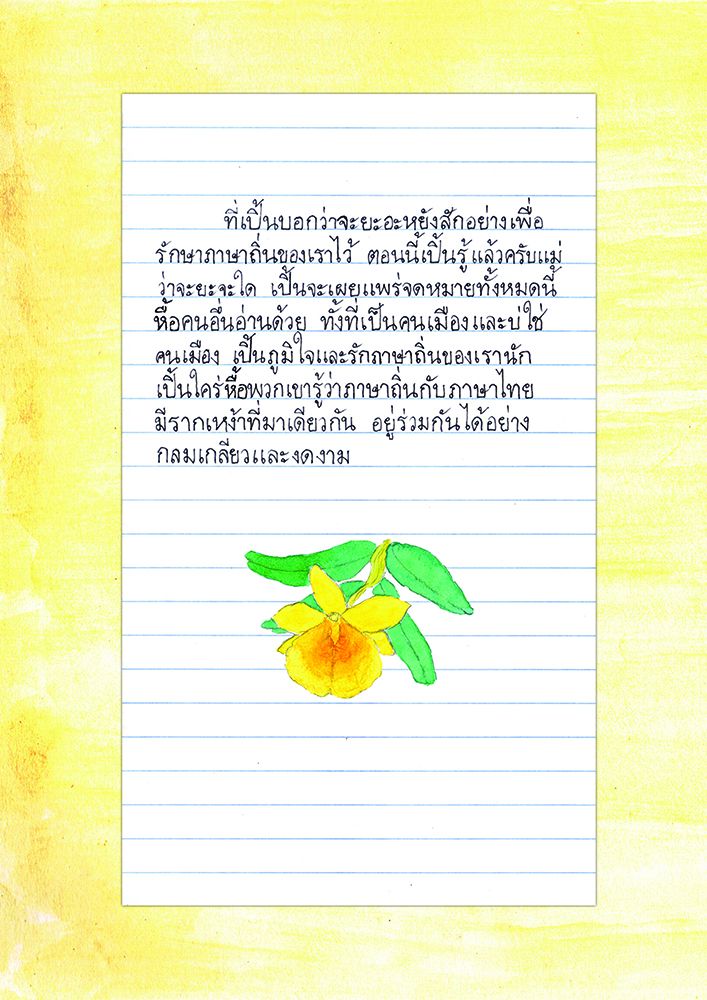 ที่เปิ้นบอกว่าจะยะอะหยังสักอย่างเพื่อ
รักษาภาษาถิ่นของเราไว้ ตอนนี้เปิ้นรู้แล้วครับแม่
ว่าจะยะจะใด เปิ้นจะเผยแพร่จดหมายทั้งหมดนี้
หื้อคนอื่นอ่านด้วย ทั้งที่เป็นคนเมืองและบ่ใช่
คนเมือง เปิ้นภูมิใจและรักภาษาถิ่นของเรานัก
เปิ้นใคร่หื้อพวกเขารู้ว่าภาษาถิ่นกับภาษาไทย
มีรากเหง้าที่มาเดียวกัน อยู่ร่วมกันได้อย่าง
กลมเกลียวและงดงาม